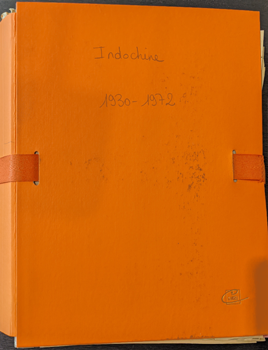 Indochine
1930-1972